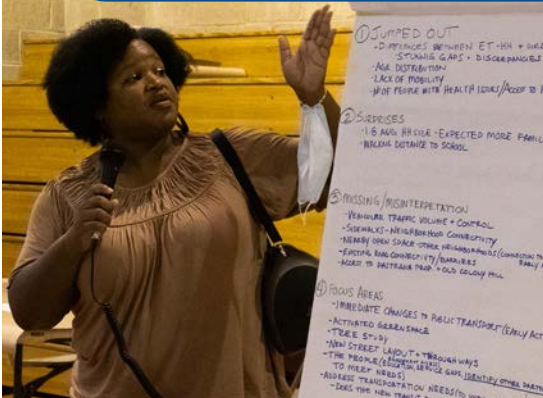 ① JUMPED OUT
- DIFFERENCES BETWEEN ET-HH +
STRIKING GAPS + DISCREPANCIES
- AGE DISTRIBUTION
- LACK OF MOBILITY
- # OF PEOPLE WITH HEALTH ISSUES/ACCESS TO
② SURPRISES
- 1.8 AVG HH SIZE - EXPECTED MORE
- WALKING DISTANCE TO SCHOOL
③ MISSING/MISINTERPETATION
- VEHICULAR TRAFFIC VOLUME + CONTROL
- SIDEWALKS - NEIGHBORHOOD CONNECTIVITY
- NEARBY OPEN SPACE - OTHER NEIGHBORHOODS
- EXISTING ROAD CONNECTIVITY/BARRIERS
- ACCESS TO PROP. + OLD COLONY HILL
④ FOCUS AREAS
- IMMEDIATE CHANGES TO PUBLIC TRANSPORT (EARLY
- ACTIVATED GREENSPACE
- TREE STUDY
- NEW STREET LAYOUT + THROUGH WAYS
- THE PEOPLE (EDUCATION, SERVICE GAPS, IDENTIFY OTHER
TO MEET NEEDS)
- ADDRESS TRANSPORTATION NEEDS
- DOES THE NEW